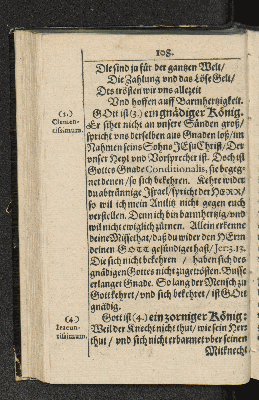 108.
Die sind ja für der gantzen Welt/
Die Zahlung und das Löse Gelt/
Des trösten wir uns allezeit
Und hoffen auff Barmhertzigkeit.
(3.)
Clemen-
tissimum.
GOtt ist (3.) ein gnädiger König.
Er sihet nicht an unsere Sünden groß/
spricht uns derselben aus Gnaden loß/im
Nahmen seins Sohns JEsu Christ/Der
unser Heyl und Vorsprecher ist. Doch ist
Gottes Gnade Conditionalis, sie begeg-
net denen/so sich bekehren. Kehre wider
du abtrünnige Israel/spricht der HERR/
so wil ich mein Antlitz nicht gegen euch
verstellen. Denn ich bin barmhertzig/und
wil nicht ewiglich zürnen. Allein erkenne
deine Missethat/daß du wider den HErrn
deinen GOTT gesündiget hast/Jer: 3. 13.
Die sich nicht bekehren / haben sich des
gnädigen Gottes nicht zugetrösten. Busse
erlanget Gnade. So lang der Mensch zu
Gott kehret/und sich bekehret/ist GOtt
gnädig.
(4.)
Iracun-
tissimum.
Gott ist (4.) ein zorniger König:
Weil der Knecht nicht thut/wie sein Herr
thut/und sich nicht erbarmet uber seinen
Mitknecht